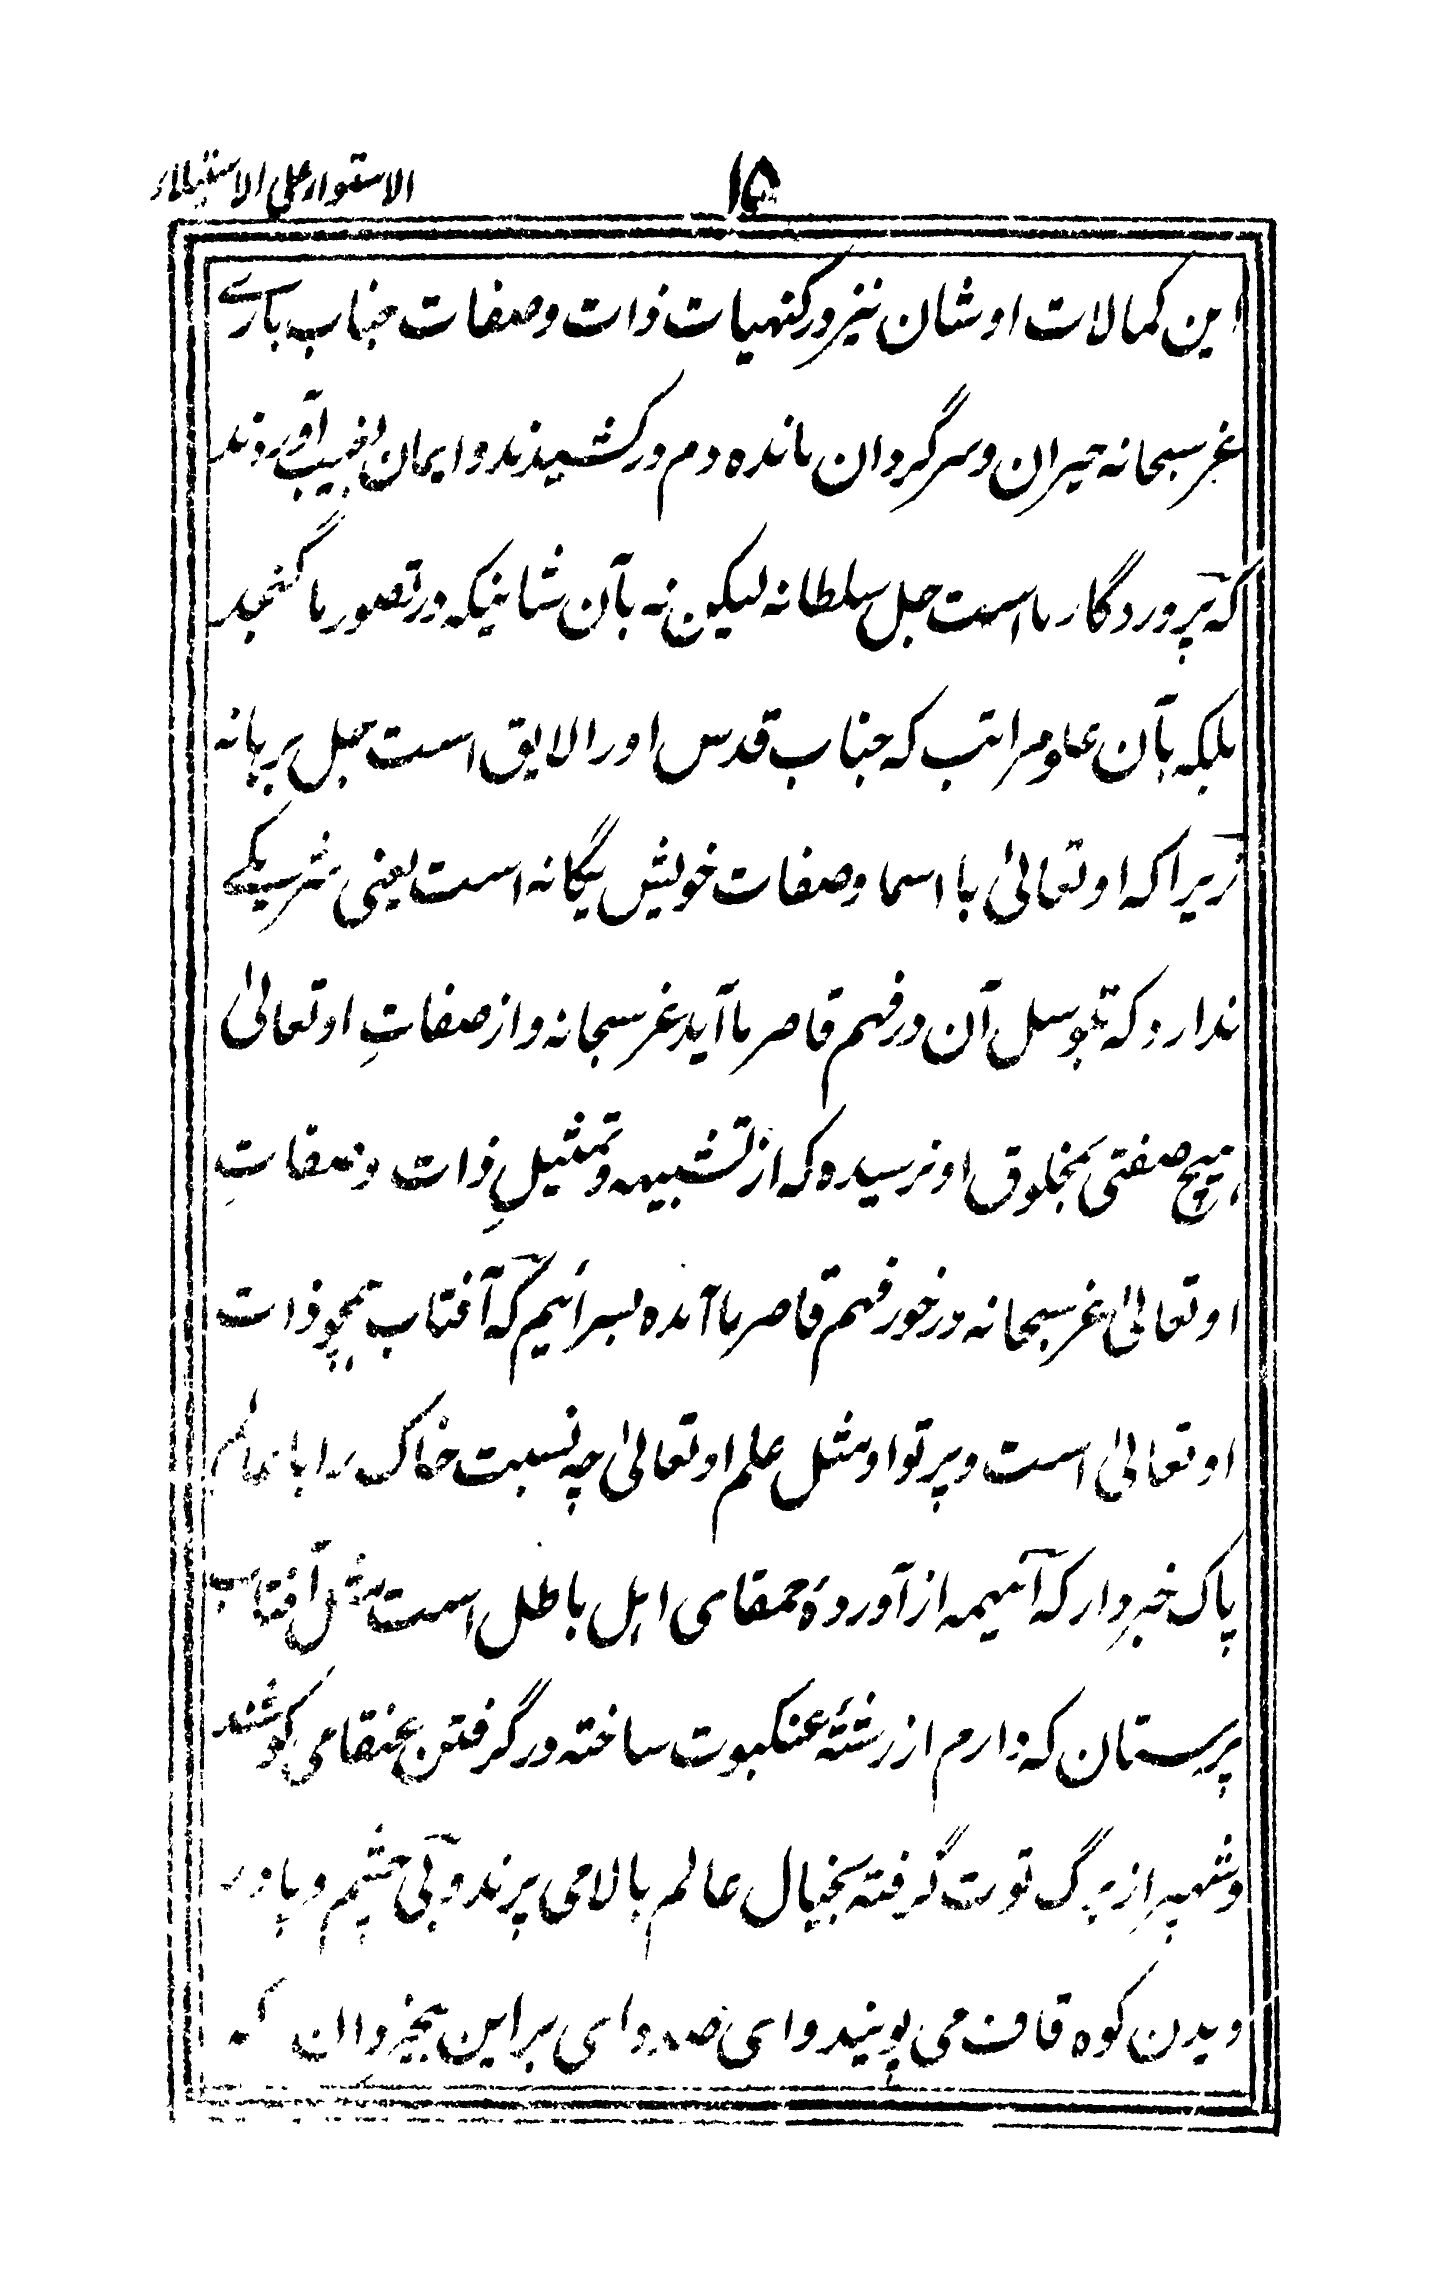 الاستوار علی الاستیلار
۱۵
این کمالات اوشان نیز در کنهیات ذات و صفات جناب باری
عز سبحانه حیران و سرگردان مانده دم در کشیدند و ایمان بغیب آوردند
که پروردگار ما است جل سلطانه لیکن نه بآن شانیکه در تصور ما گنجد
بلکه بآن علو مراتب که جناب قدس اورا لایق است جل برهانه
زیرا که او تعالیٰ با اسما و صفات خویش یگانه است یعنی شریکے
ندارد که بتوسل آن در فهم قاصر ما آید عز سبحانه و از صفاتِ او تعالیٰ
هیچ صفتی بمخلوق او نرسیده که از تشبیه و تمثیلِ ذات و صفاتِ
او تعالیٰ عز سبحانه در خور فهم قاصر ما آمده بسرائیم که آفتاب همچو ذات
او تعالیٰ است و پرتو او مثل علم او تعالیٰ چه نسبت خاک را با عالم
پاک خبردار که آنهمه از آوردهٔ حمقای اهل باطل است مثل آفتاب
پرستان که دارم از رشتهٔ عنکبوت ساخته در گرفتن عنقا می کوشند
و شهپر از برگ توت گرفته بخیال عالم بالا می پرند و بی چشم و پا در
دیدن کوه قاف می پویند وای صد وای بر این بیخردان که